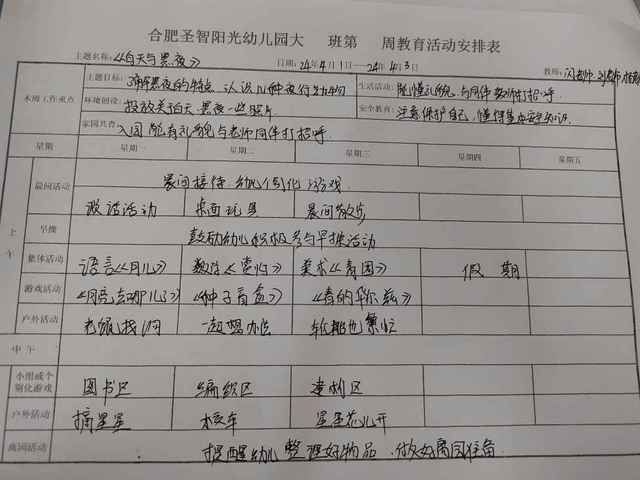 合肥圣智阳光幼儿园大 班第 周教育活动安排表
主题名称:《白天与黑夜》 日期:24年4月1—24年4月3 教师:
本周工作重点 主题目标:了解黑夜的特点,认识几种夜行动物 生活活动:能懂礼貌,与同伴教师打招呼
环境创设:投放关于白天 黑夜一些照片 安全教育:注意保护自己,懂得基本安全知识
家园共育:入园能有礼貌与老师同伴打招呼
星期 星期一 星期二 星期三 星期四 星期五
上午 晨间活动 晨间接待 幼儿个别化游戏
谈话活动 桌面玩具 晨间散步
早操 鼓励幼儿积极参与早操活动
集体活动 语言《月儿》 数学 美术 假期
游戏活动 《月亮去哪儿了》 《种子盲盒》
户外活动 一起想办法
中午
小组或个别化游戏 图书区 编织区 建构区
户外活动 摘星星 星星花儿开
离园活动 提醒幼儿整理好物品,做好离园准备